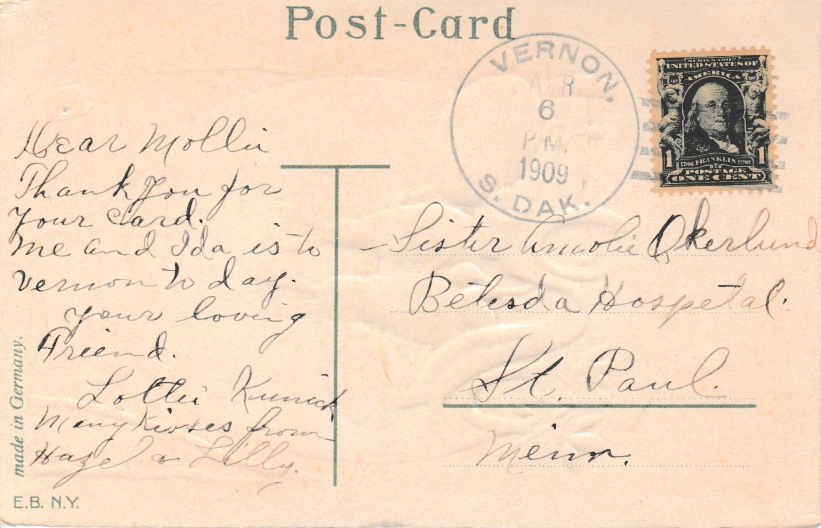 Post-Card
VERNON,
APR
6
P.M.
1909
S. DAK.
SERIES 1902
UNITED STATES OF
AMERICA
1 1
1706 FRANKLIN 1790
POSTAGE
ONE CENT
Dear Mollie
Thank you for
your card.
me and Ida is to
Vernon to day.
your loving
Friend.
Lottie
Many Kisses from
Hazel & Lilly.
Sister Amolie Okerlund
Betesda Hospetal.
St. Paul.
Minn.
made in Germany.
E.B. N.Y.